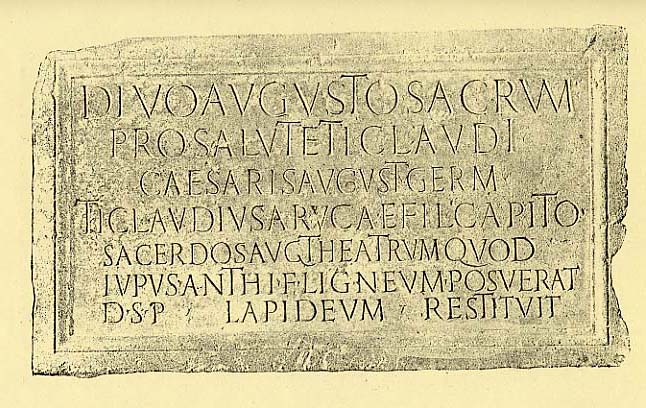 DIVOAVGVSTOSACRVM
PROSALVTETICLAVDI
CAESARISAVGVSTGERM
TICLAVDIVSARVCAEFILCAPITO
SACERDOSAVGTHEATRVMQVOD
LVPVSANTHIFLIGNEVMPOSVERAT
D·S·P LAPIDEVM RESTITVIT